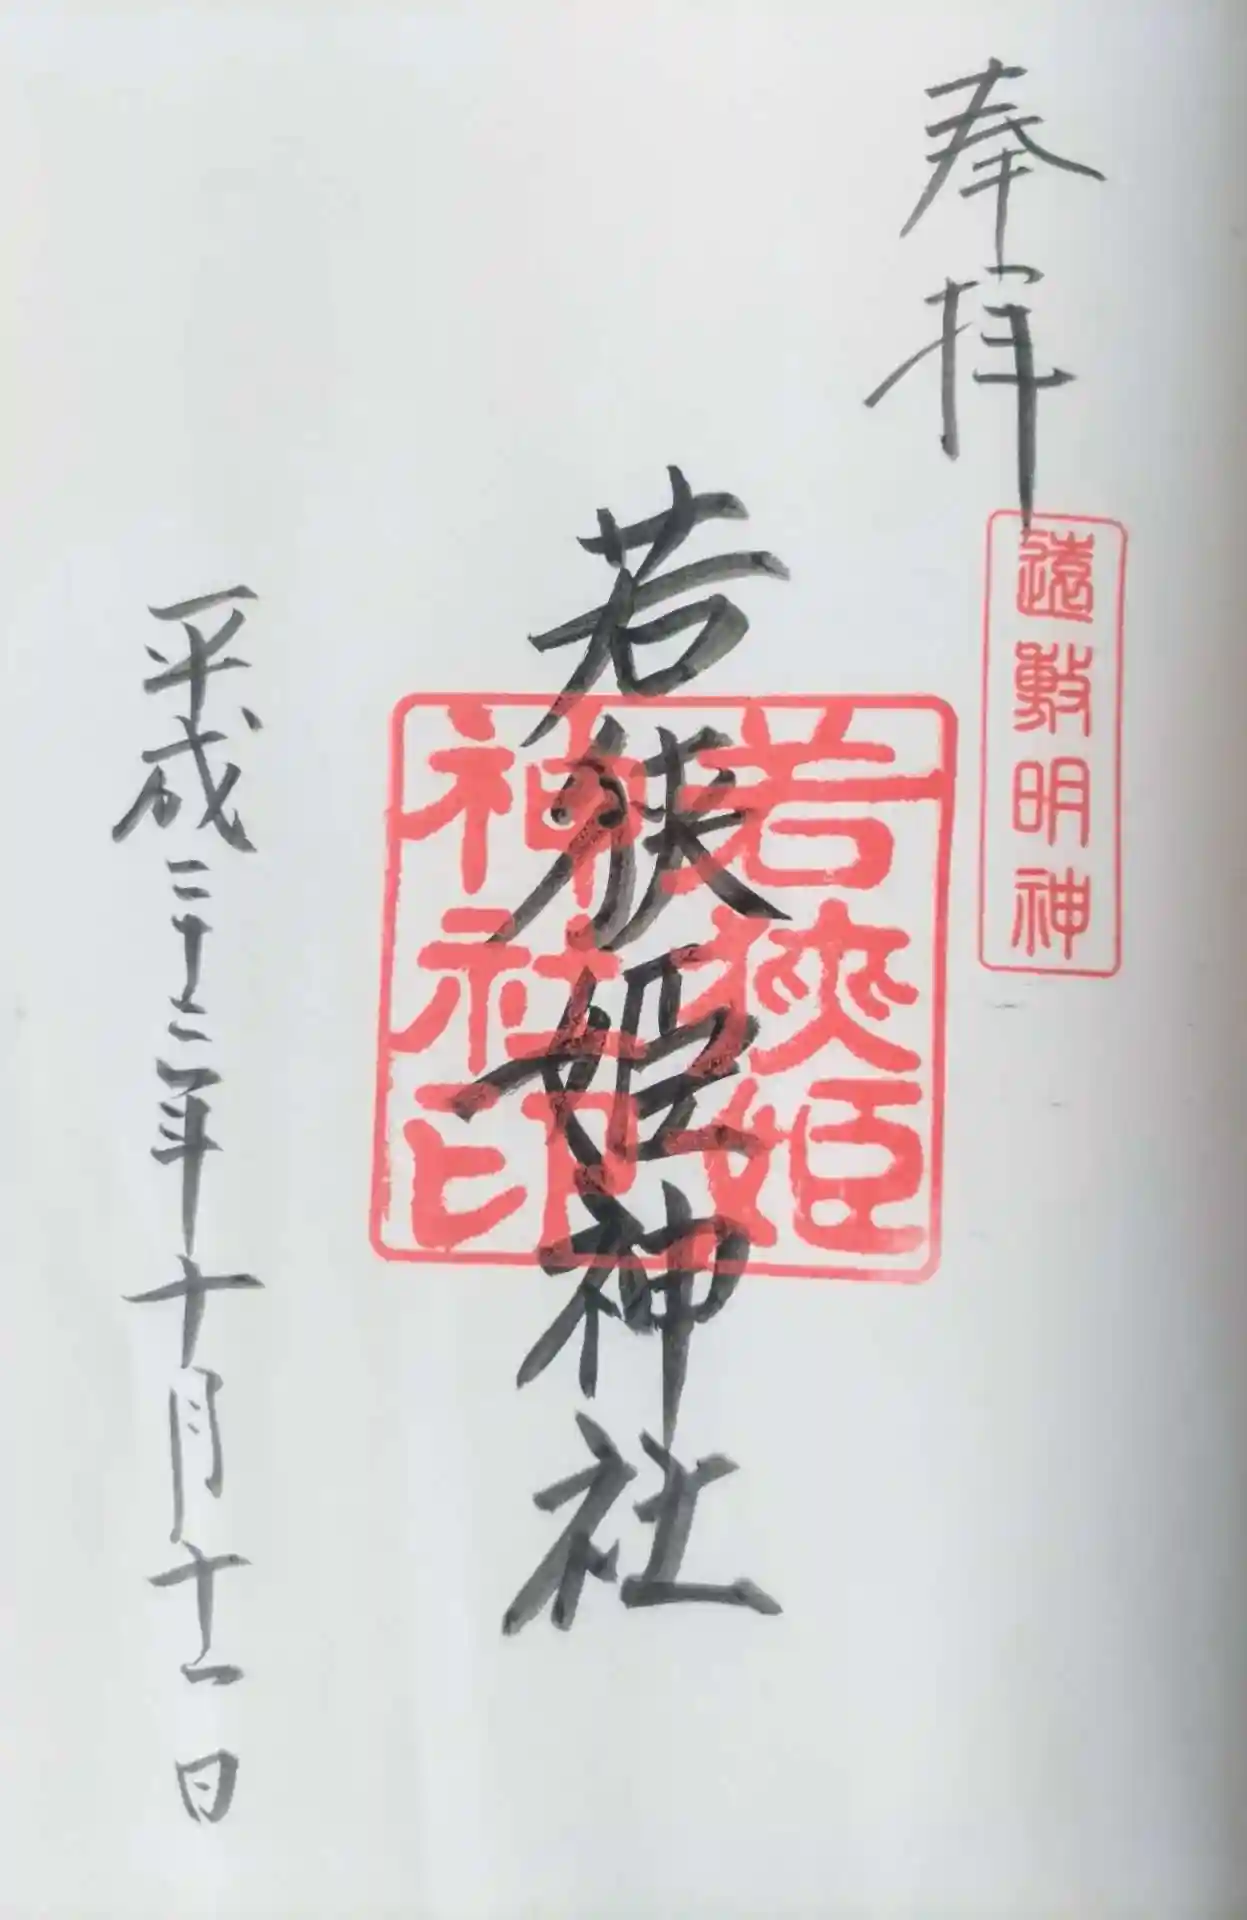 奉拝
遠敷明神
若狭姫神社
若狹姫
神社印
平成二十二年十月十一日